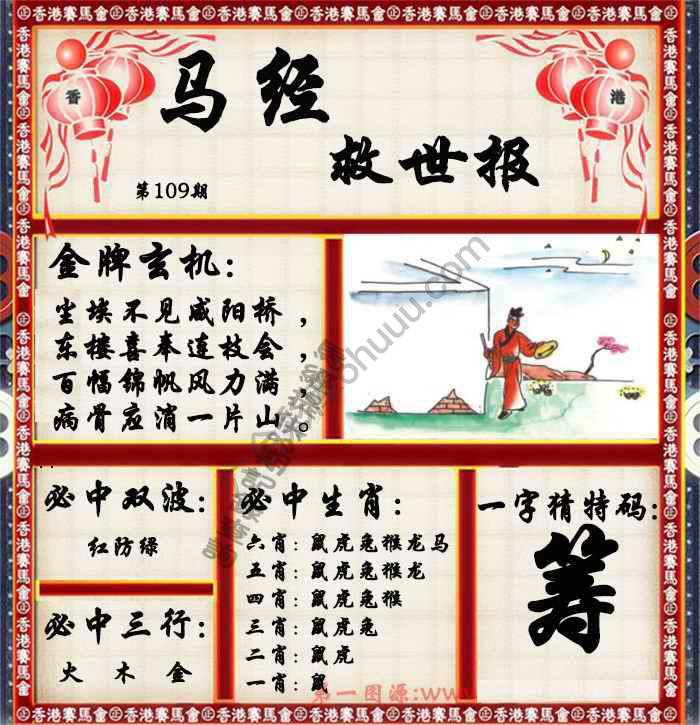 正香港賽馬會正香港賽馬會正香港賽馬會正香港賽馬會正香港賽馬會正
香
港
马经
救世报
第109期
金牌玄机：
尘埃不见咸阳桥，
东楼喜奉连枝会，
百幅锦帆风力满，
病骨应消一片山。
必中双波：
红防绿
必中三行：
火 木 金
必中生肖：
六肖：鼠虎兔猴龙马
五肖：鼠虎兔猴龙
四肖：鼠虎兔猴
三肖：鼠虎兔
二肖：鼠虎
一肖：鼠
一字猜特码：
筹
第一图源:www